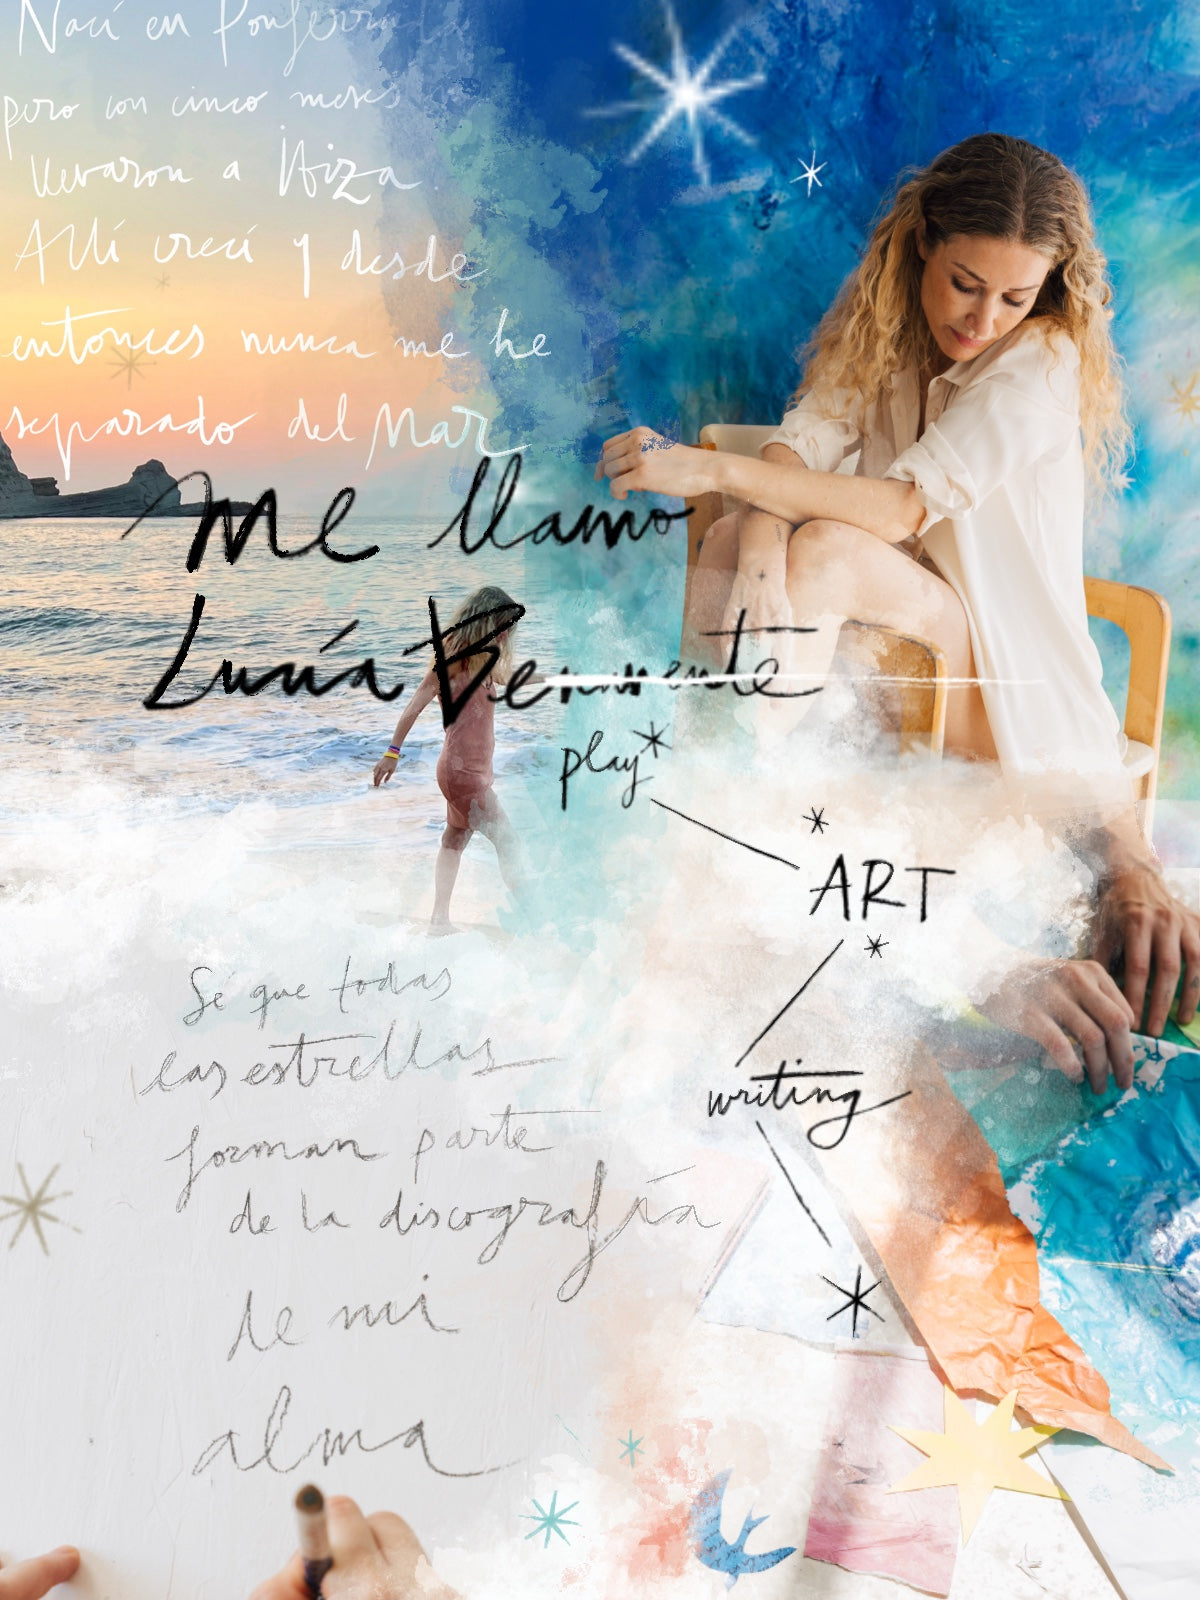 Nací en Ponferra
pero con cinco meses
llevaron a Ibiza
Allí crecí y desde
entonces nunca me he
separado del Mar
Me llamo
Lucía Benavente
play
ART
writing
Sé que todas
las estrellas
forman parte
de la discografía
de mi
alma